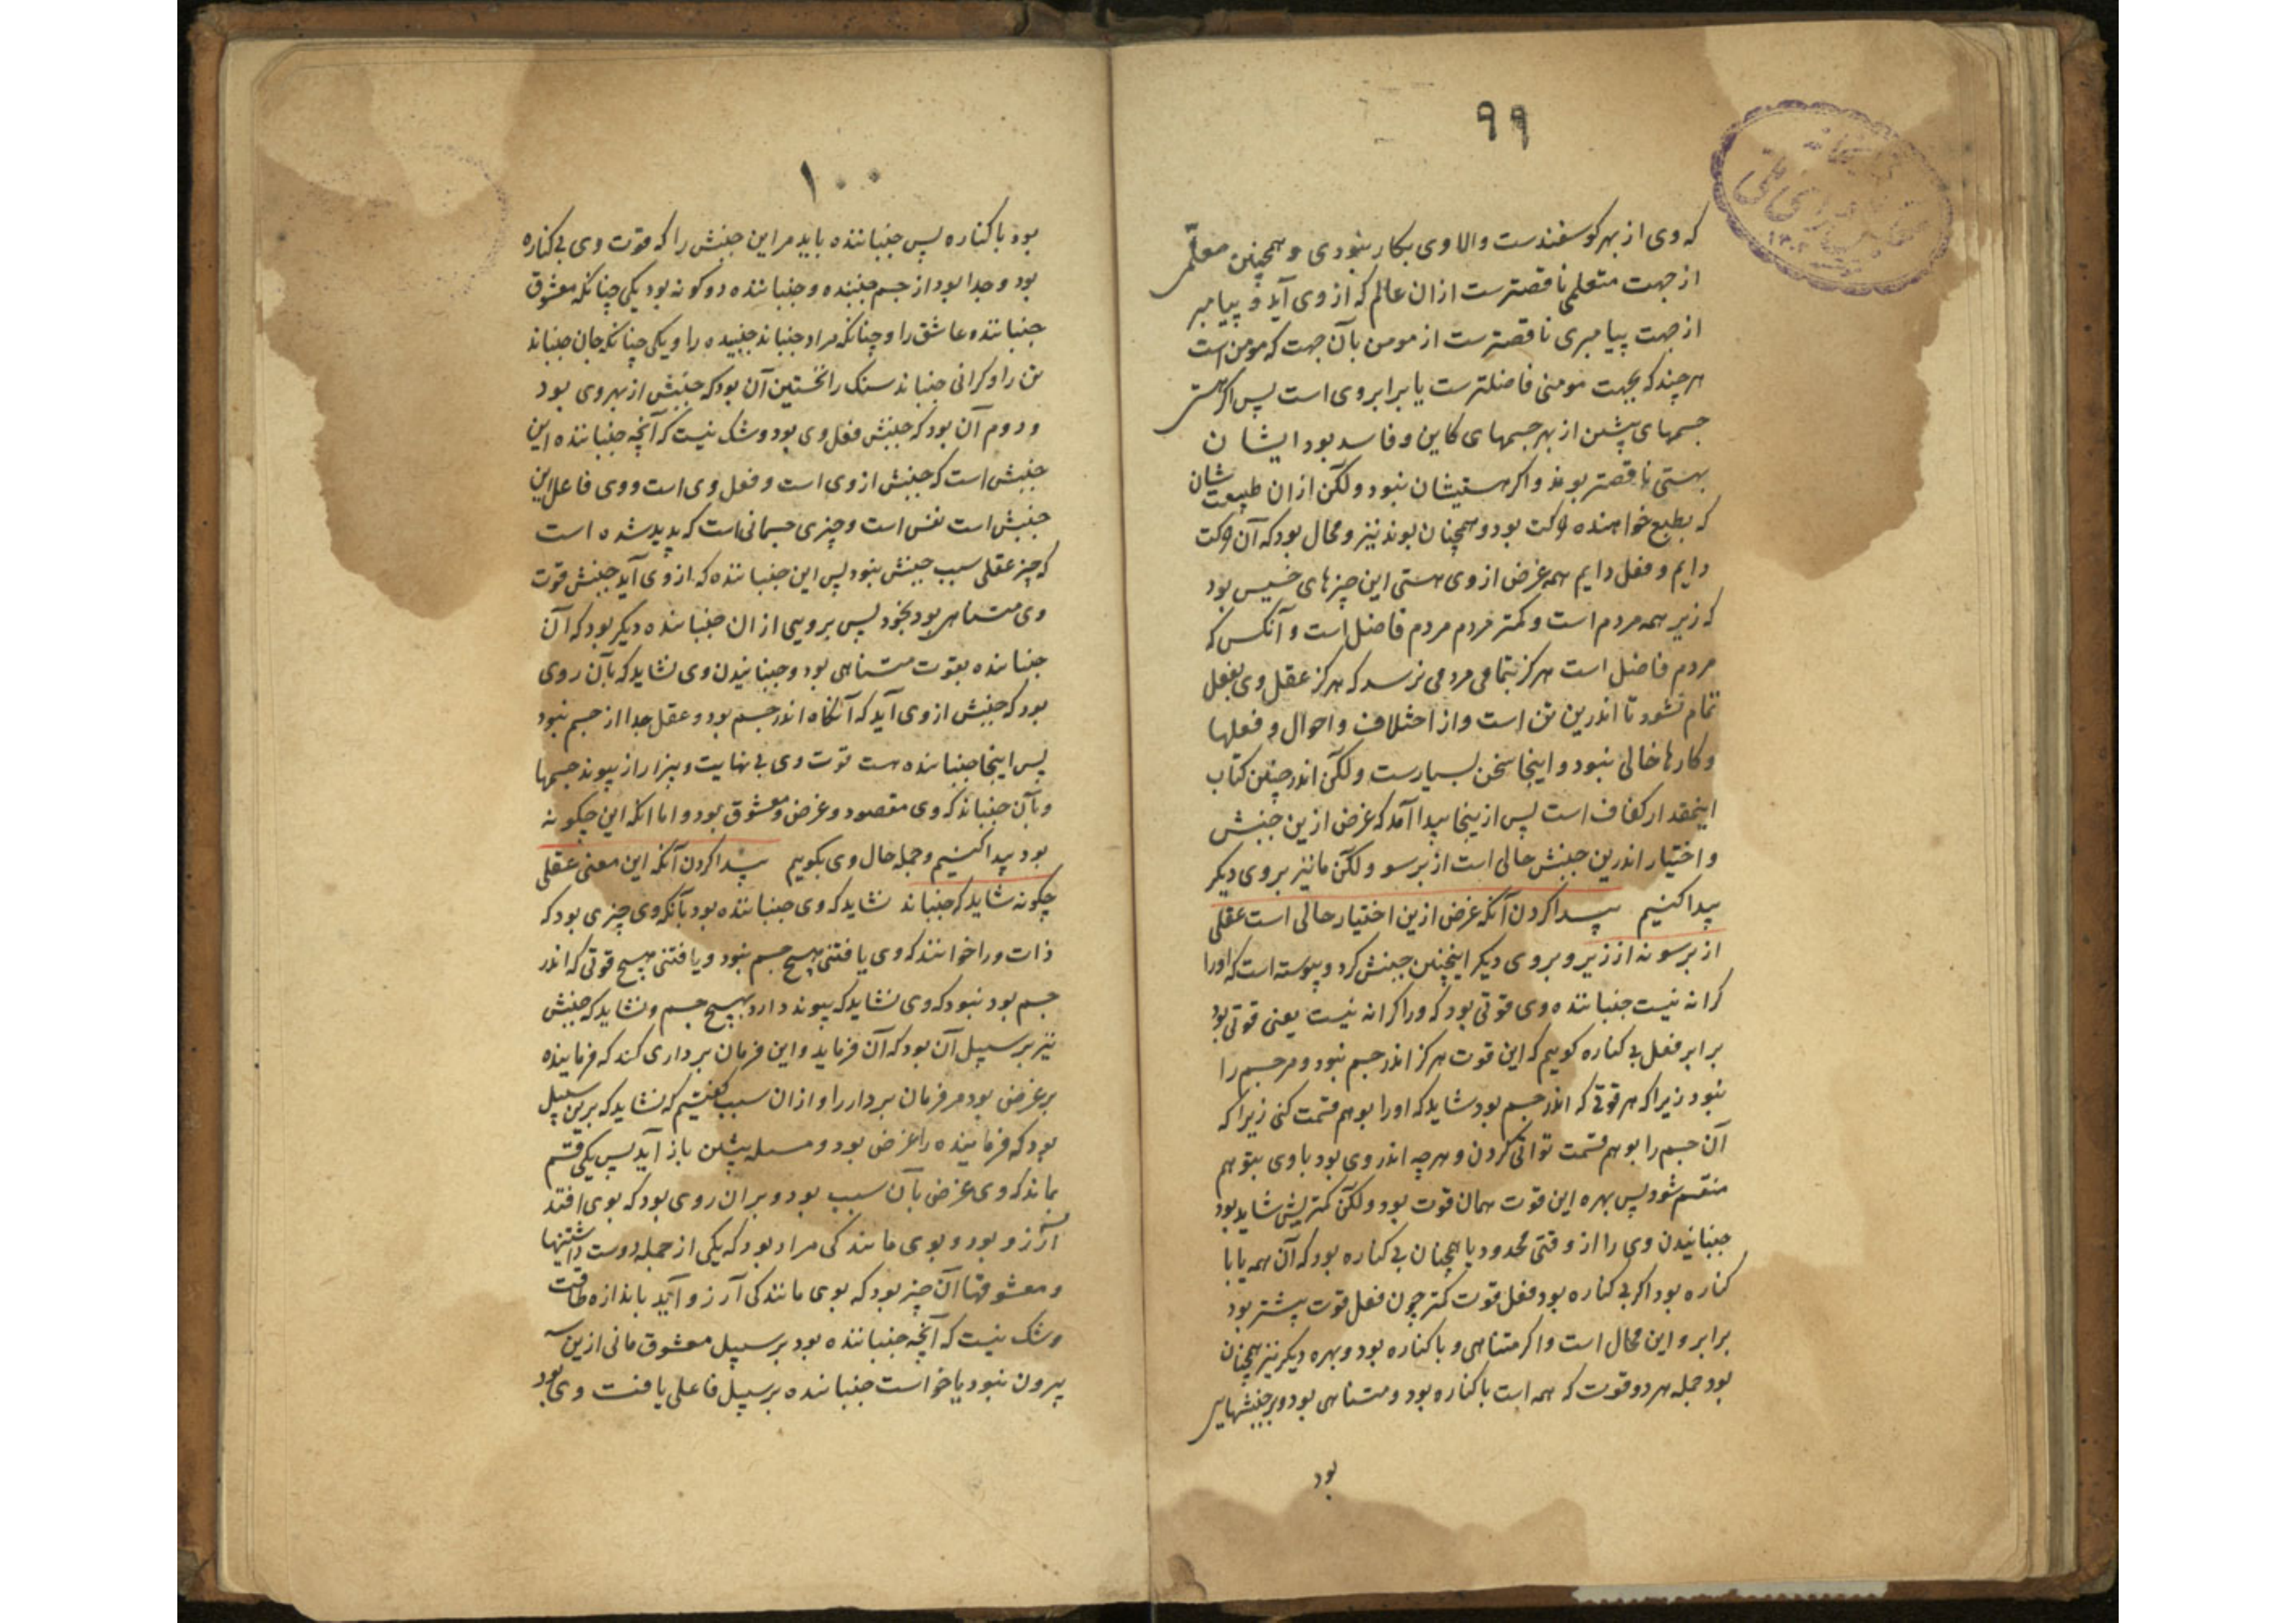 ۹۹
که وی از بهر کوسفندست والا وی بکار نبودی و همچنین معلمی
از جهت متعلمی ناقصترست ازان عالم که از وی آید و پیامبر
از جهت پیامبری ناقصترست از مومن بآن جهت که مومن است
هرچند که بجهت مومنی فاضلترست یا برابر وی است پس اکر هستی
جسمهای پیشین از بهر جسمهای کاین و فاسد بود ایشان
بهستی ناقصتر بوند و اکر هستیشان نبود ولکن ازان طبیعت شان
که بطبع خواهنده حرکت بود و همچنان بوند نیز و محال بود که آن حرکت
دایم و فعل دایم همه غرض از وی هستی این چیزهای خسیس بود
که زیر همه مردم است و کمتر مردم مردم فاضل است و آنکس که
مردم فاضل است هرکز بتمامی مردمی نرسد که هرکز عقل وی بفعل
تمام نشود تا اندرین تن است و از اختلاف و احوال و فعلها
و کارها خالی نبود و اینجا سخن بسیارست ولکن اندر چنین کتاب
اینمقدار کفاف است پس ازینجا پیدا آمد که غرض ازین جنبش
و اختیار اندرین جنبش حالی است از برسو ولکن ما نیز بروی دیکر
پیدا کنیم پیدا کردن آنکه غرض ازین اختیار حالی است عقلی
از برسو نه از زیر و بروی دیکر اینچنین جنبش کرد و پیوسته است که او را
کرانه نیست جنباننده وی قوتی بود که ورا کرانه نیست یعنی قوتی بود
برابر فعل بی کناره کوییم که این قوت هرکز اندر جسم نبود و مر جسم را
نبود زیرا که هر قوتی که اندر جسم بود شاید که او را بوهم قسمت کنی زیرا که
آن جسم را بوهم قسمت توانی کردن و هرچه اندر وی بود با وی بتوهم
منقسم شود پس بهره این قوت همان قوت بود ولکن کمتریش شاید بود
جنبانیدن وی را از وقتی محدود یا همچنان بی کناره بود که آن همه یا با
کناره بود اکر بی کناره بود فعل قوت کمتر چون فعل قوت بیشتر بود
برابر و این محال است و اکر متناهی و با کناره بود و بهره دیکر نیز همچنان
بود جمله هر دو قوت که همه است با کناره بود و متناهی بود و بر جنبشهایی
بود
۱۰۰
بود با کناره پس جنباننده باید مر این جنبش را که قوت وی بی کناره
بود و جدا بود از جسم جنبنده و جنباننده دو کونه بود یکی چنانکه معشوق
جنباننده عاشق را و چنانکه مراد جنباند جنبیده را و یکی چنانکه جان جنباند
تن را و کرانی جنباند سنک را نخستین آن بود که جنبش از بهر وی بود
و دوم آن بود که جنبش فعل وی بود و شک نیست که آنچه جنباننده این
جنبش است که جنبش از وی است و فعل وی است و وی فاعل این
جنبش است نفس است و چیزی جسمانی است که پدید شده است
که چیز عقلی سبب جنبش نبود پس این جنباننده که از وی آید جنبش قوت
وی متناهی بود بخود پس برویی ازان جنباننده دیکر بود که آن
جنباننده بقوت متناهی بود و جنبانیدن وی نشاید که بآن روی
بود که جنبش از وی آید که آنکاه اندر جسم بود و عقل جدا از جسم نبود
پس اینجا جنباننده هست قوت وی بی نهایت و بیزار از پیوند جسمها
و بآن جنباند که وی مقصود و غرض و معشوق بود و اما آنکه این چکونه
بود پیدا کنیم و جمله حال وی بکوییم پیدا کردن آنکه این معنی عقلی
چکونه شاید که جنباند نشاید که وی جنباننده بود بآنکه وی چیزی بود که
ذات ورا خوانند که وی یافتنی هیچ جسم نبود و یافتنی هیچ قوتی که اندر
جسم بود نبود که وی نشاید که پیوند دارد بهیچ جسم و نشاید که جنبش
نیز بر سبیل آن بود که آن فرماید و این فرمان برداری کند که فرماینده
بر غرضی بود مر فرمان بردار را و ازان سبب کفتیم که نشاید که برین سبیل
بود که فرماینده را غرض بود و مسله پیشین باز آید پس یکی قسم
بماند که وی غرض بآن سبب بود و بران روی بود که بوی افتد
آرزو بود و بوی مانندکی مراد بود که یکی از جمله دوست داشتنیها
و معشوقها آن چیز بود که بوی مانندکی آرزو آید باندازه طاقت
و شک نیست که آنچه جنباننده بود بر سبیل معشوق مانی ازین
بیرون نبود یا خواست جنباننده بر سبیل فاعلی یافت وی بود